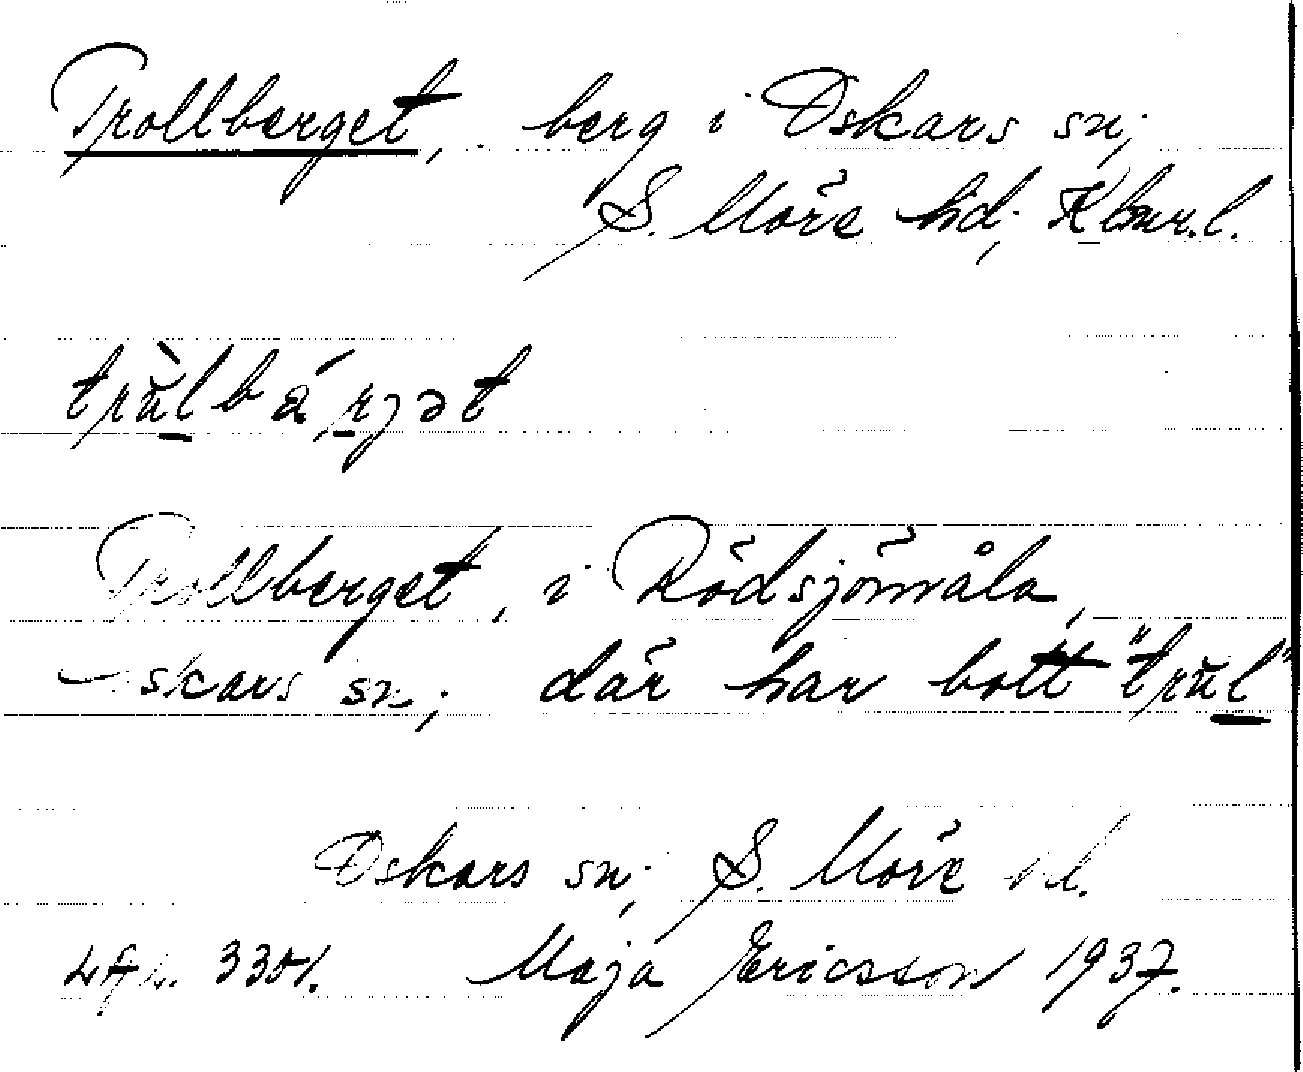 Trollberget, berg i Oskars sn;
S. Möre hd; Klmr.l.
trùlbárjət
Trollberget, i Rödsjömåla,
Oskars sn; där har bott "trŭl"
Oskars sn; S. Möre hd.
Maja Ericsson 1937.